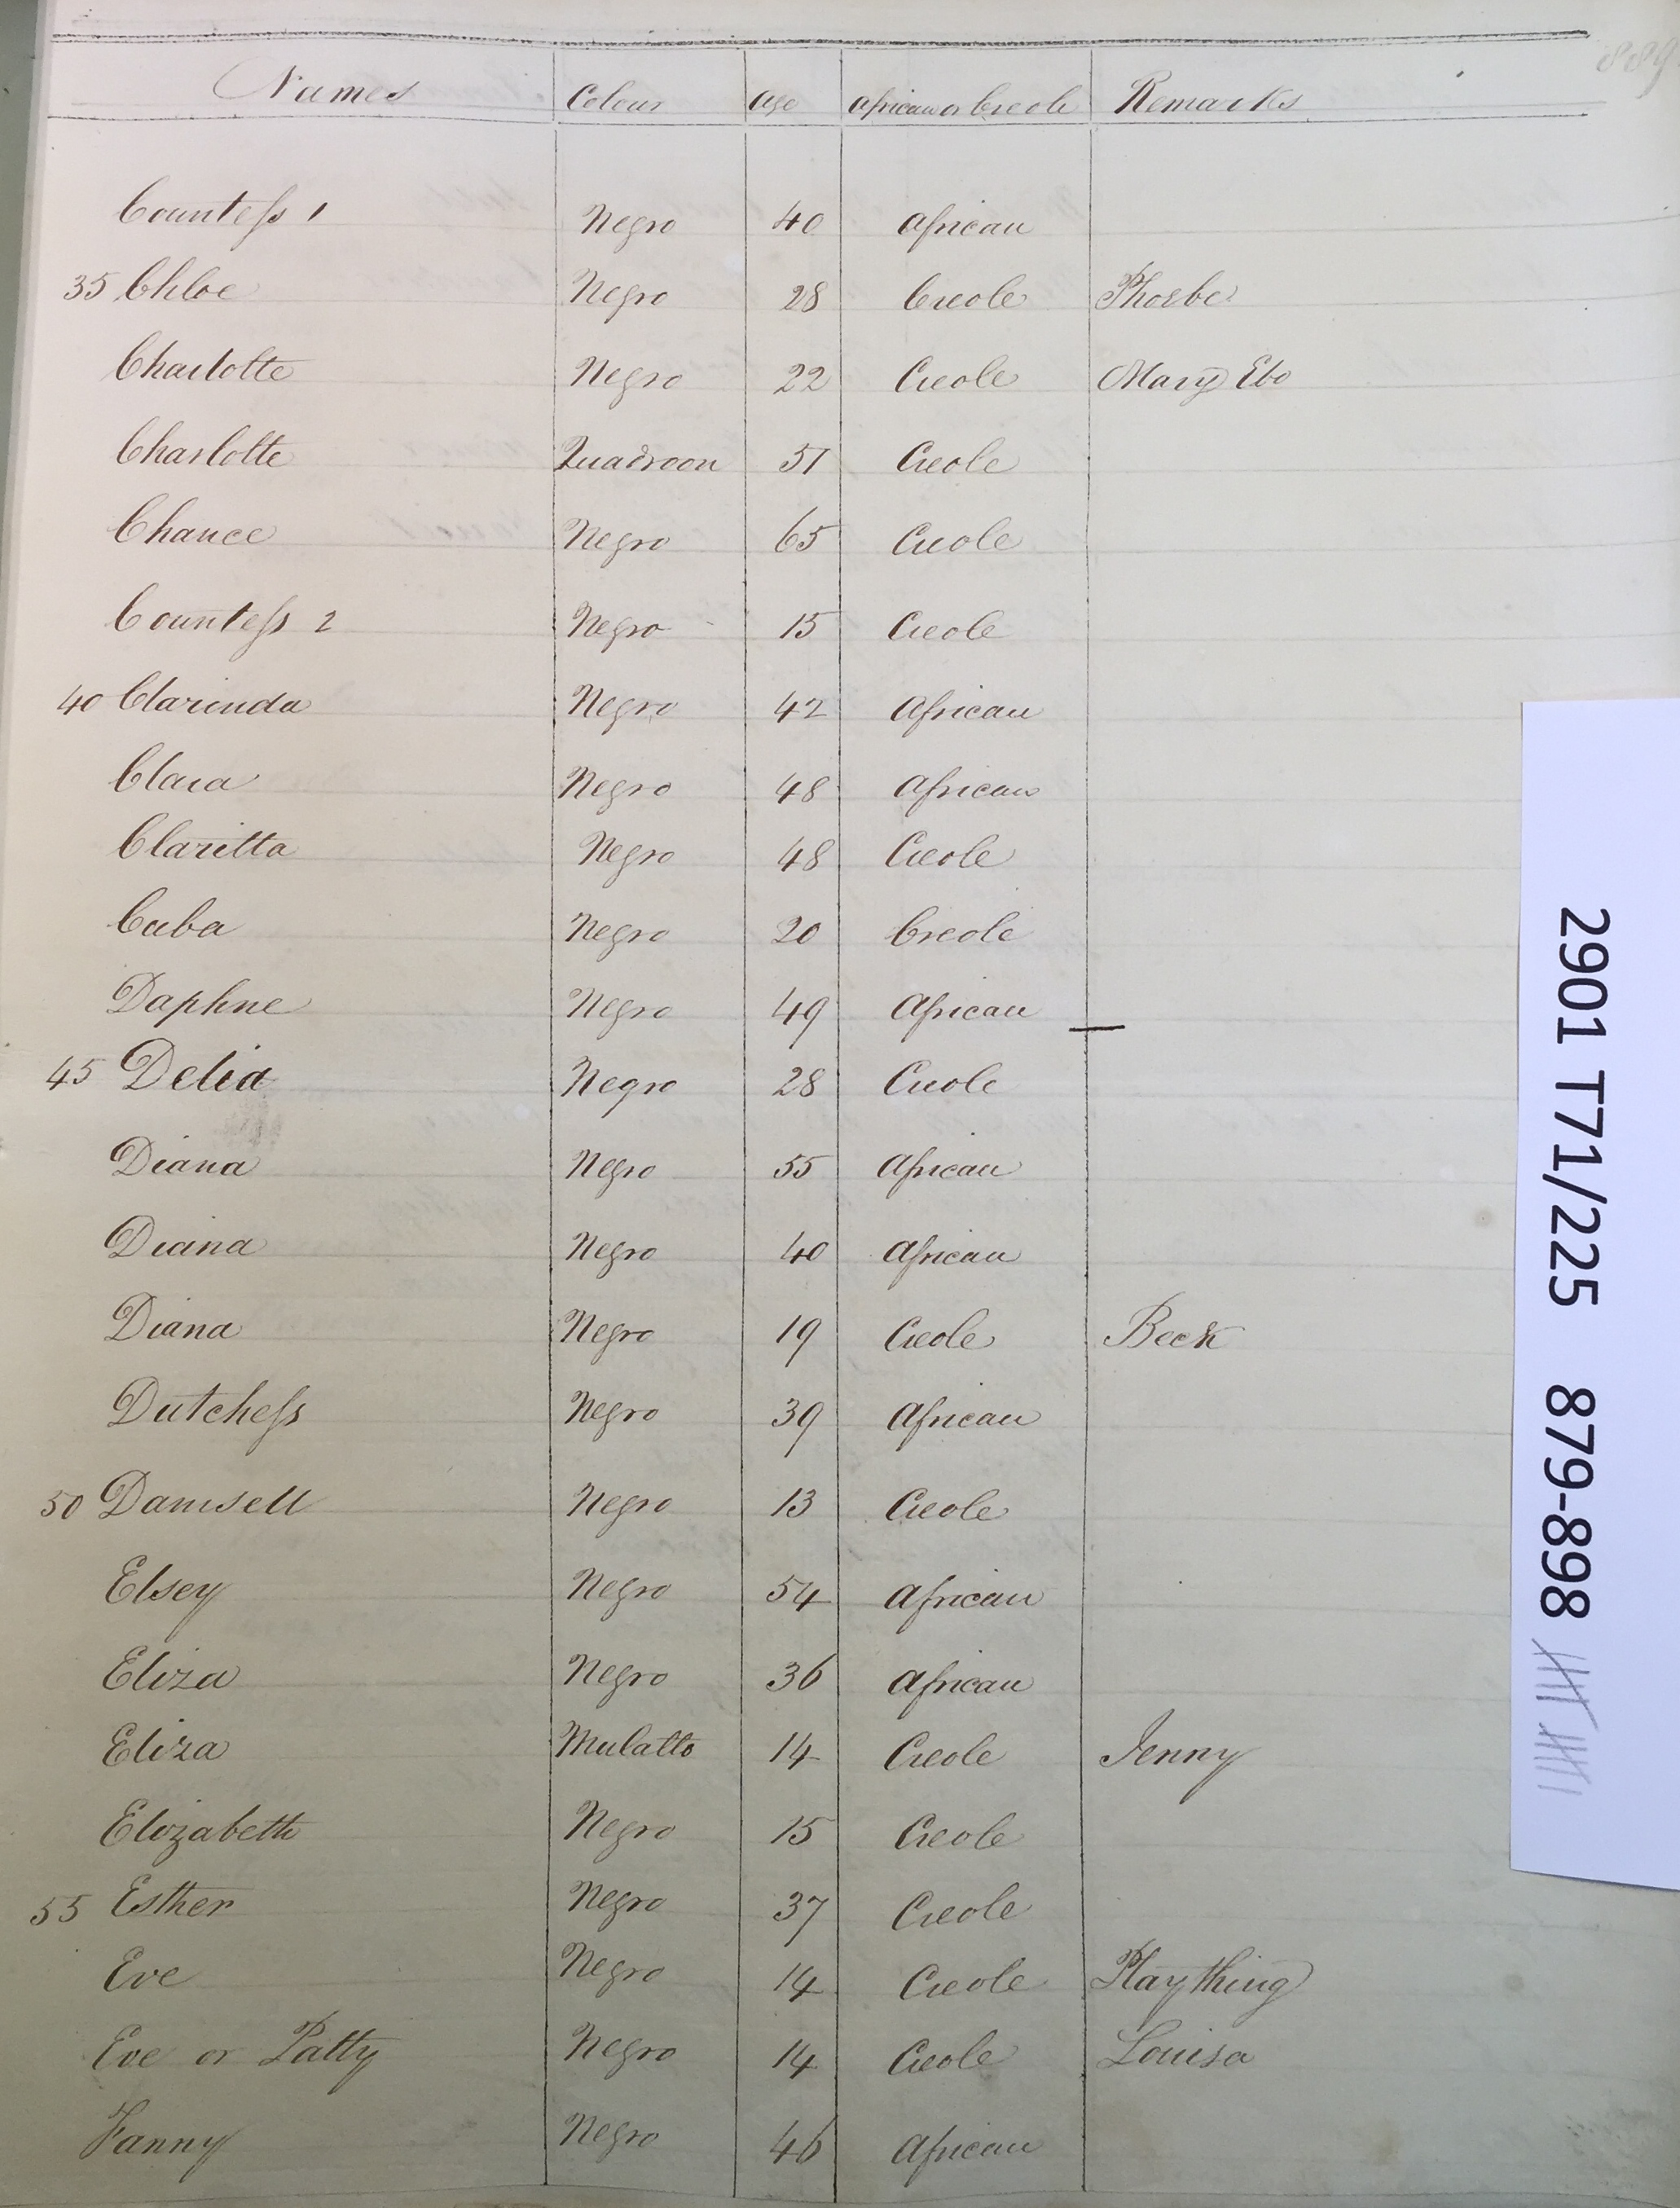 889
Names Colour Age African or Creole Remarks
Countess 1 Negro 40 African
35 Chloe Negro 28 Creole Phoebe
Charlotte Negro 22 Creole Mary Ebo
Charlotte Quadroon 51 Creole
Chance Negro 65 Creole
Countess 2 Negro 15 Creole
40 Clarinda Negro 42 African
Clara Negro 48 African
Claritta Negro 48 Creole
Cuba Negro 20 Creole
Daphne Negro 49 African
45 Delia Negro 28 Creole
Diana Negro 55 African
Diana Negro 40 African
Diana Negro 19 Creole Beck
Dutchess Negro 39 African
50 Damsell Negro 13 Creole
Elsey Negro 54 African
Eliza Negro 36 African
Eliza Mulatto 14 Creole Jenny
Elizabeth Negro 15 Creole
55 Esther Negro 37 Creole
Eve Negro 14 Creole Plaything
Eve or Patty Negro 14 Creole Louisa
Fanny Negro 46 African
2901 T71/225 879-898